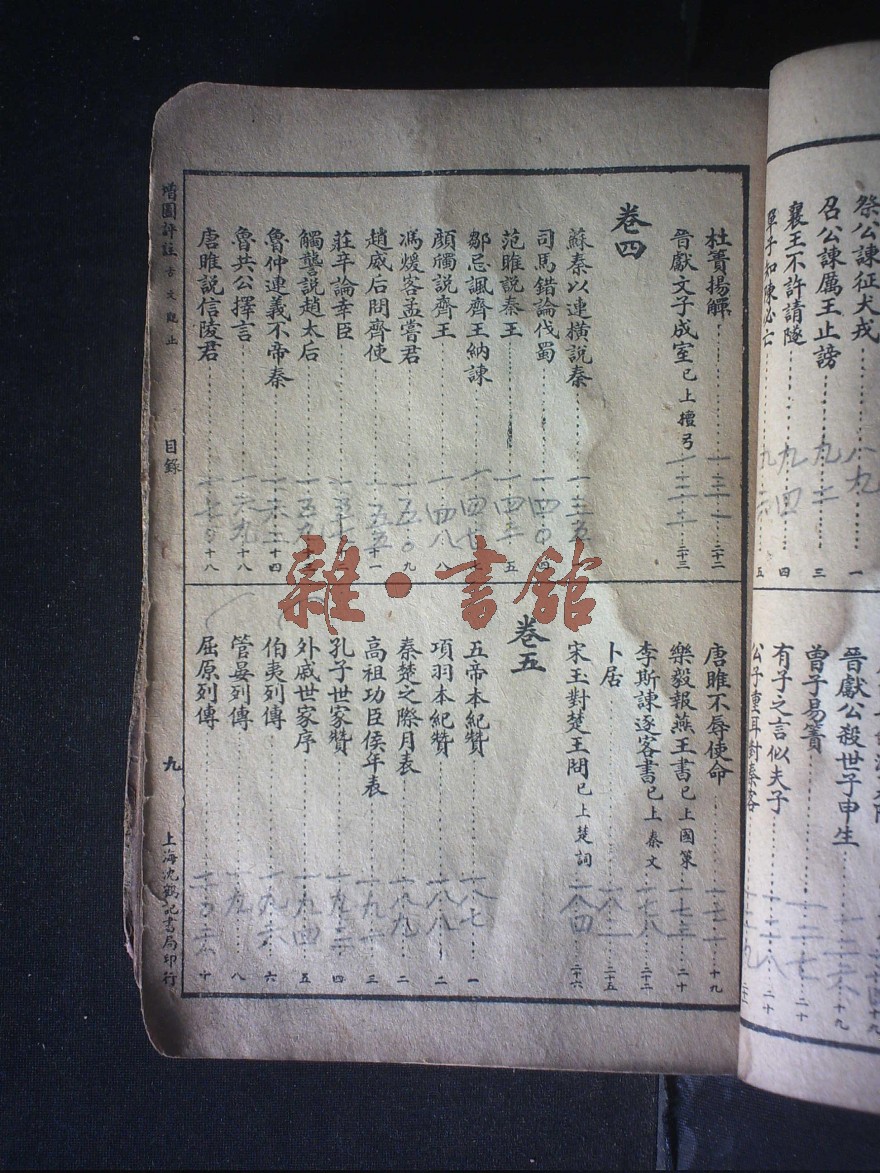 祭公諫征犬戎 一
召公諫厲王止謗 三
襄王不許請隧 四
單子知陳必亡 五
晉獻公殺世子申生 十九
曾子易簀 二十
有子之言似夫子 二十
公子重耳對秦客
杜簀揚觶 二十二
晉獻文子成室已上檀弓 二十三
卷四
蘇秦以連橫說秦
司馬錯論伐蜀 四
范雎說秦王 五
鄒忌諷齊王納諫 七
顏觸說齊王 八
馮煖客孟嘗君 九
趙威后問齊使 十一
莊辛論幸臣 十二
觸讋說趙太后
魯仲連義不帝秦 十四
魯共公擇言 十八
唐雎說信陵君 十八
唐雎不辱使命 十九
樂毅報燕王書已上國策 二十
李斯諫逐客書已上秦文 二十二
卜居 二十五
宋玉對楚王問已上楚詞 二十六
卷五
五帝本紀贊 一
項羽本紀贊 二
秦楚之際月表 二
高祖功臣侯年表 三
孔子世家贊 四
外戚世家序 五
伯夷列傳 六
管晏列傳 八
屈原列傳 十
增圖評註古文觀止
目錄
九
上海沈鶴記書局印行
雜·書館